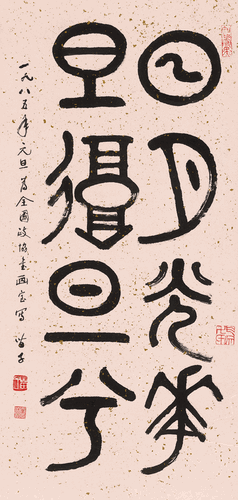 日月光華
旦復旦兮
一九八五年元旦為全國政協書画室寫 苗子